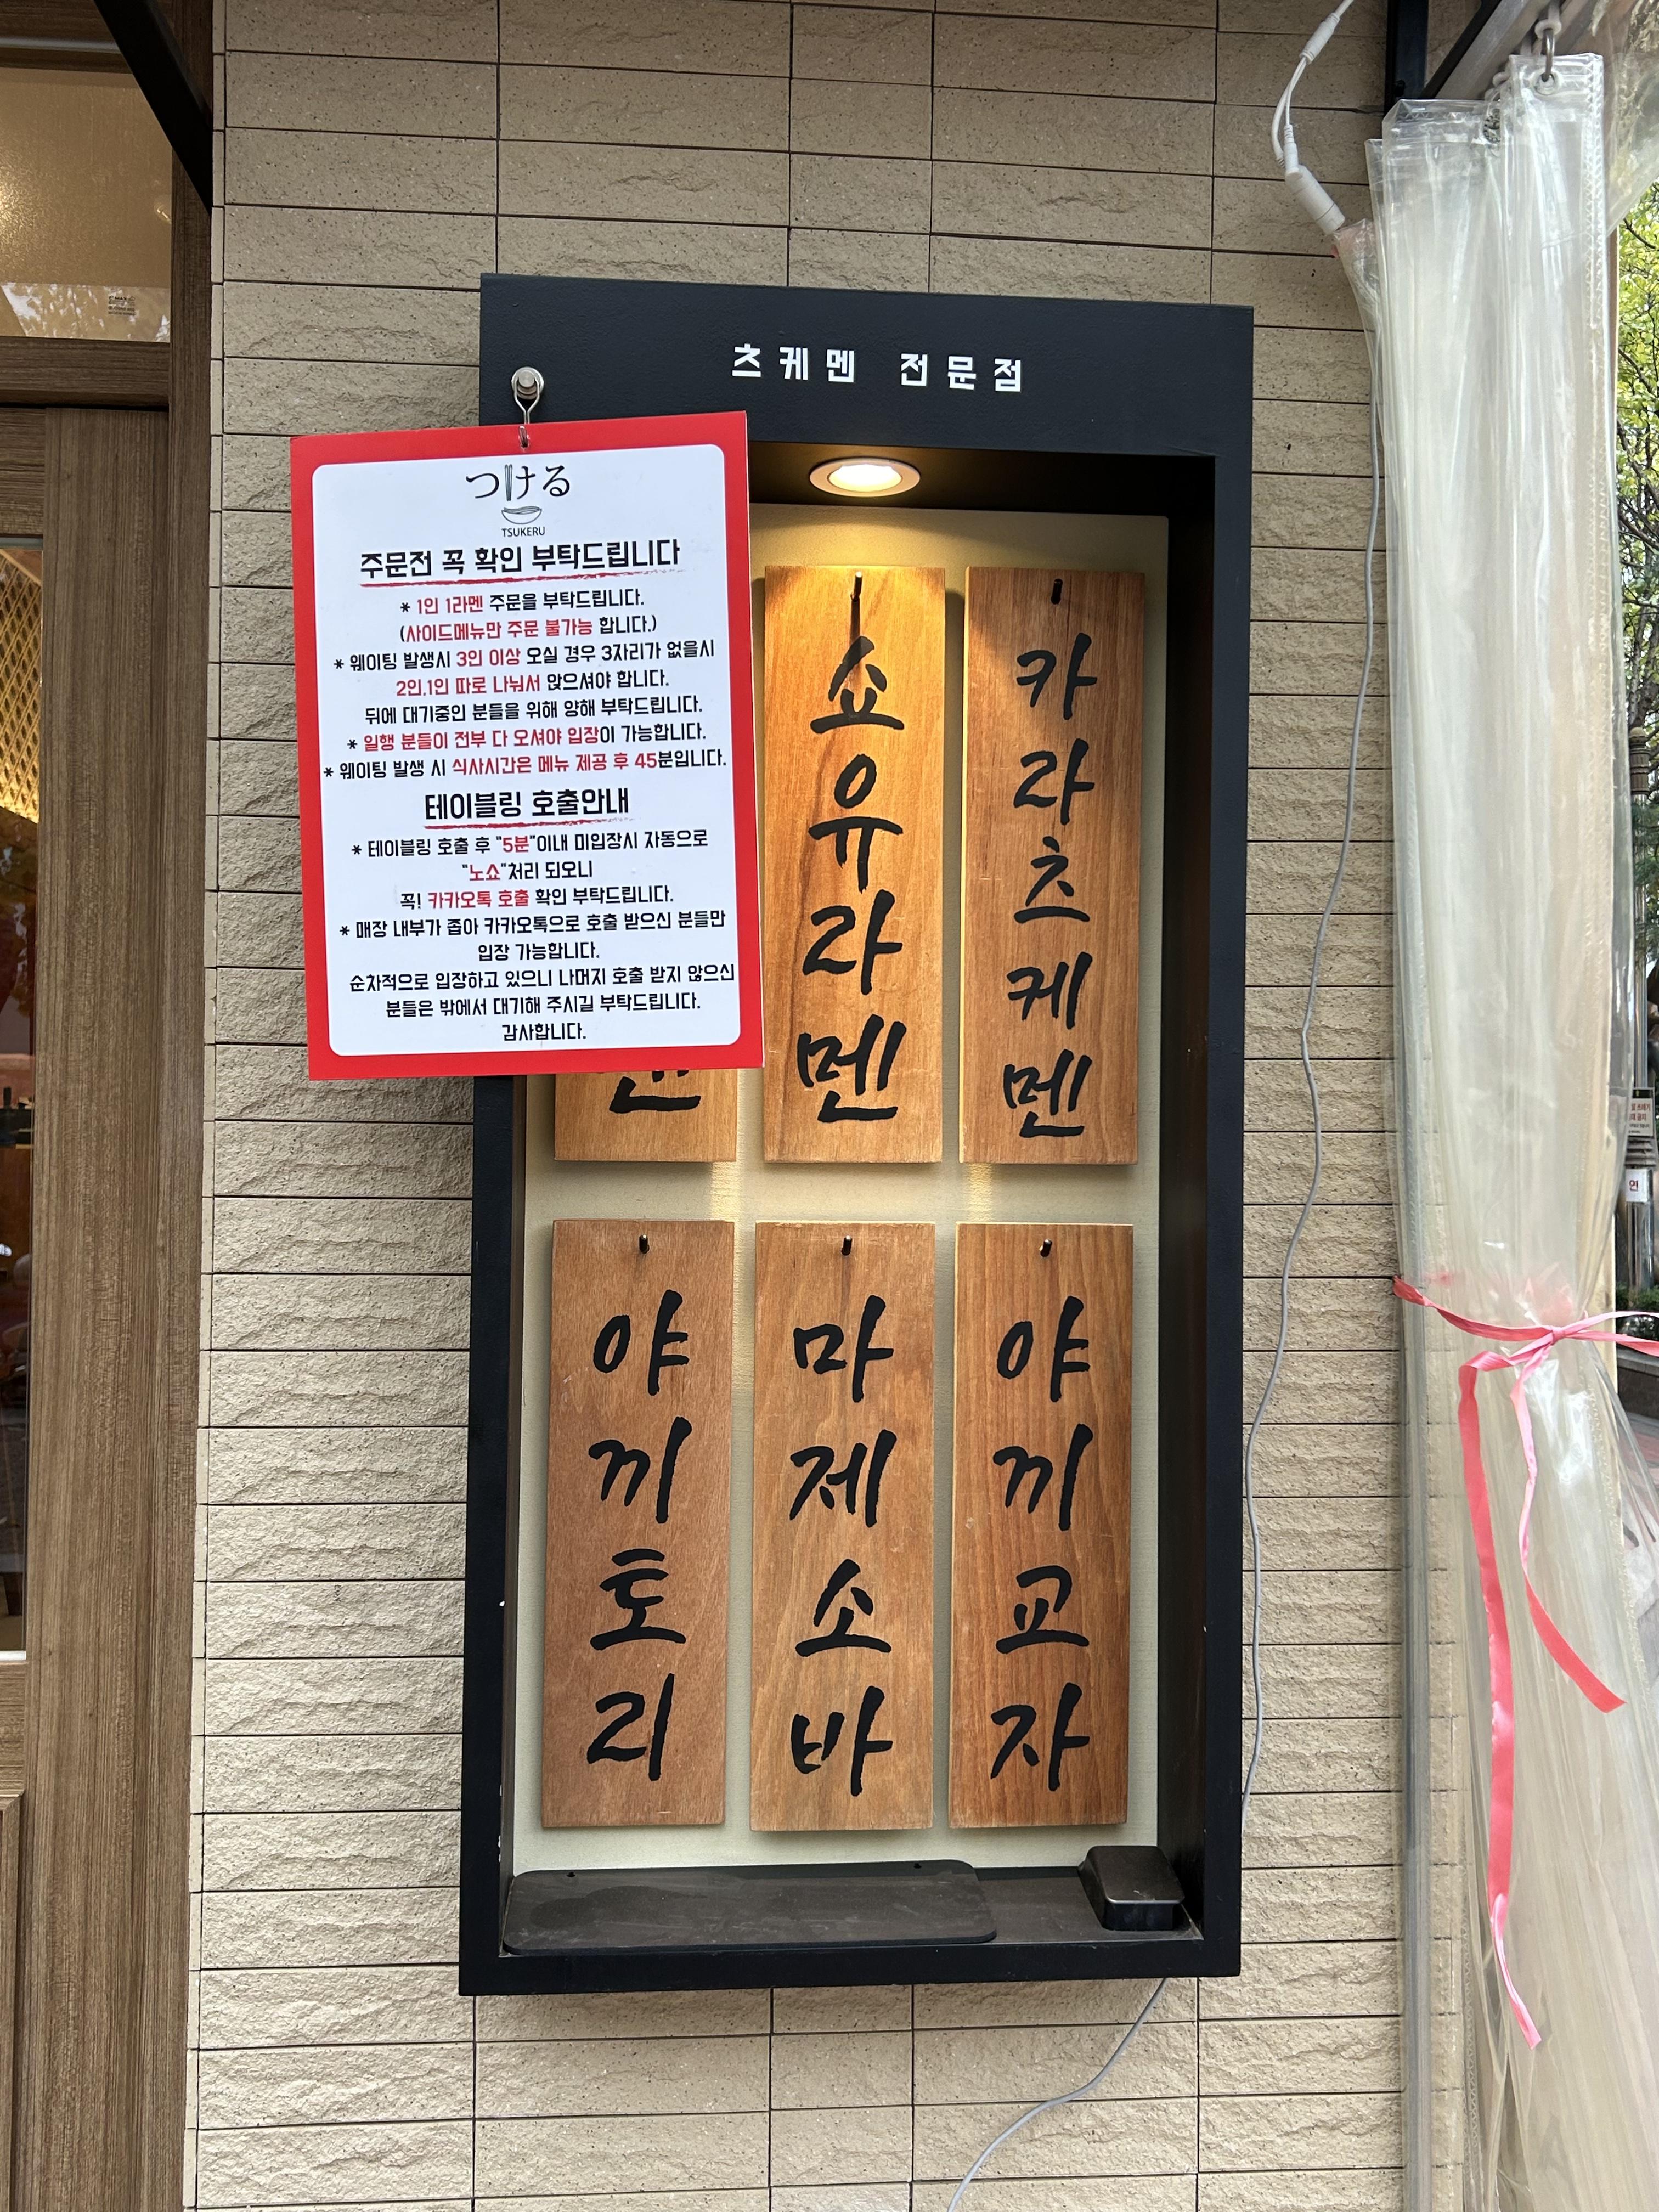 츠케멘 전문점
つける
TSUKERU
주문전 꼭 확인 부탁드립니다
* 1인 1라멘 주문을 부탁드립니다.
(사이드메뉴만 주문 불가능 합니다.)
* 웨이팅 발생시 3인 이상 오실 경우 3자리가 없을시
2인.1인 따로 나눠서 앉으셔야 합니다.
뒤에 대기중인 분들을 위해 양해 부탁드립니다.
* 일행 분들이 전부 다 오셔야 입장이 가능합니다.
* 웨이팅 발생 시 식사시간은 메뉴 제공 후 45분입니다.
테이블링 호출안내
* 테이블링 호출 후 "5분"이내 미입장시 자동으로
"노쇼"처리 되오니
꼭! 카카오톡 호출 확인 부탁드립니다.
* 매장 내부가 좁아 카카오톡으로 호출 받으신 분들만
입장 가능합니다.
순차적으로 입장하고 있으니 나머지 호출 받지 않으신
분들은 밖에서 대기해 주시길 부탁드립니다.
감사합니다.
쇼유라멘
카라츠케멘
야끼토리
마제소바
야끼교자